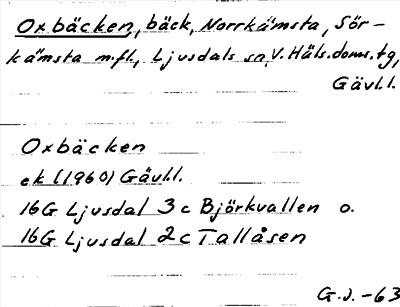 Oxbäcken, bäck, Norrkämsta, Sör-
kämsta m.fl., Ljusdals sn, V. Häls. doms. tg,
Gävl.l.
Oxbäcken
ek (1960) Gävl.l.
16G Ljusdal 3c Björkvallen o.
16G Ljusdal 2c Tallåsen
G.J. -63